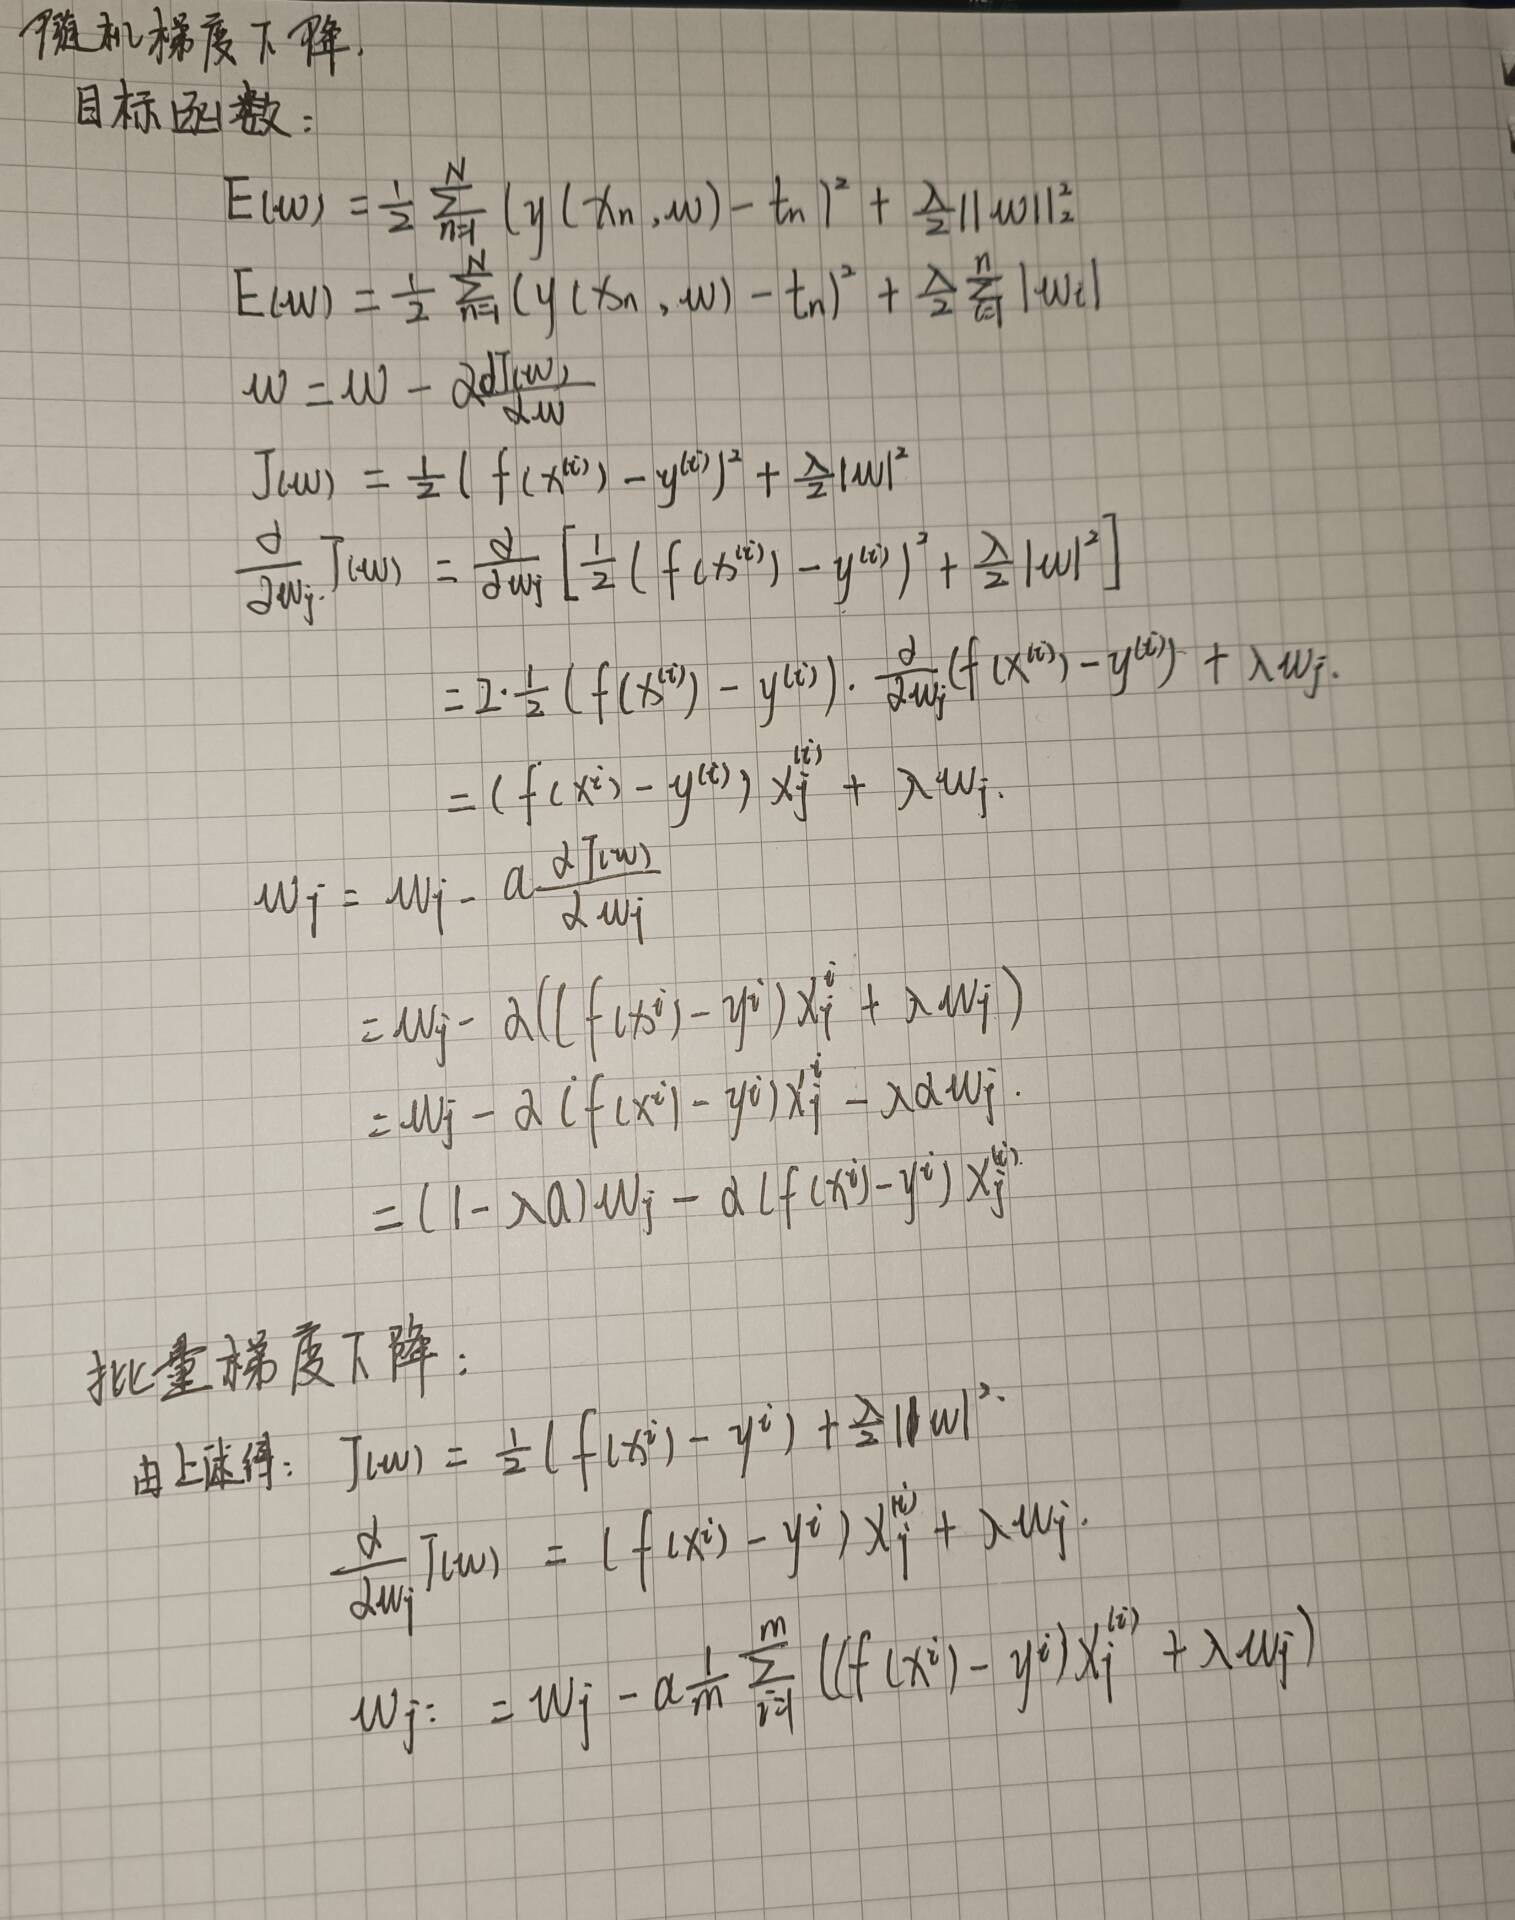 随机梯度下降.
目标函数:
E(w) = 1/2 ∑_{n=1}^{N} (y(x_n, w) - t_n)² + λ/2 ||w||₂²
E(w) = 1/2 ∑_{n=1}^{N} (y(x_n, w) - t_n)² + λ/2 ∑_{i=1}^{n} |w_i|
w = w - α ∂J(w)/∂w
J(w) = 1/2 (f(x^{(i)}) - y^{(i)})² + λ/2 |w|²
∂/∂w_j J(w) = ∂/∂w_j [1/2 (f(x^{(i)}) - y^{(i)})² + λ/2 |w|²]
= 2·1/2 (f(x^{(i)}) - y^{(i)}) · ∂/∂w_j (f(x^{(i)}) - y^{(i)}) + λw_j.
= (f(x^i) - y^{(i)}) x_j^{(i)} + λw_j.
w_j = w_j - α ∂J(w)/∂w_j
= w_j - α((f(x^i) - y^i) x_j^i + λw_j)
= w_j - α(f(x^i) - y^i) x_j^i - λαw_j.
= (1 - λα)w_j - α(f(x^i) - y^i) x_j^{(i)}
批量梯度下降:
由上述得: J(w) = 1/2 (f(x^i) - y^i) + λ/2 ||w|².
∂/∂w_j J(w) = (f(x^i) - y^i) x_j^{(i)} + λw_j.
w_j: = w_j - α 1/m ∑_{i=1}^{m} ((f(x^i) - y^i) x_j^{(i)} + λw_j)